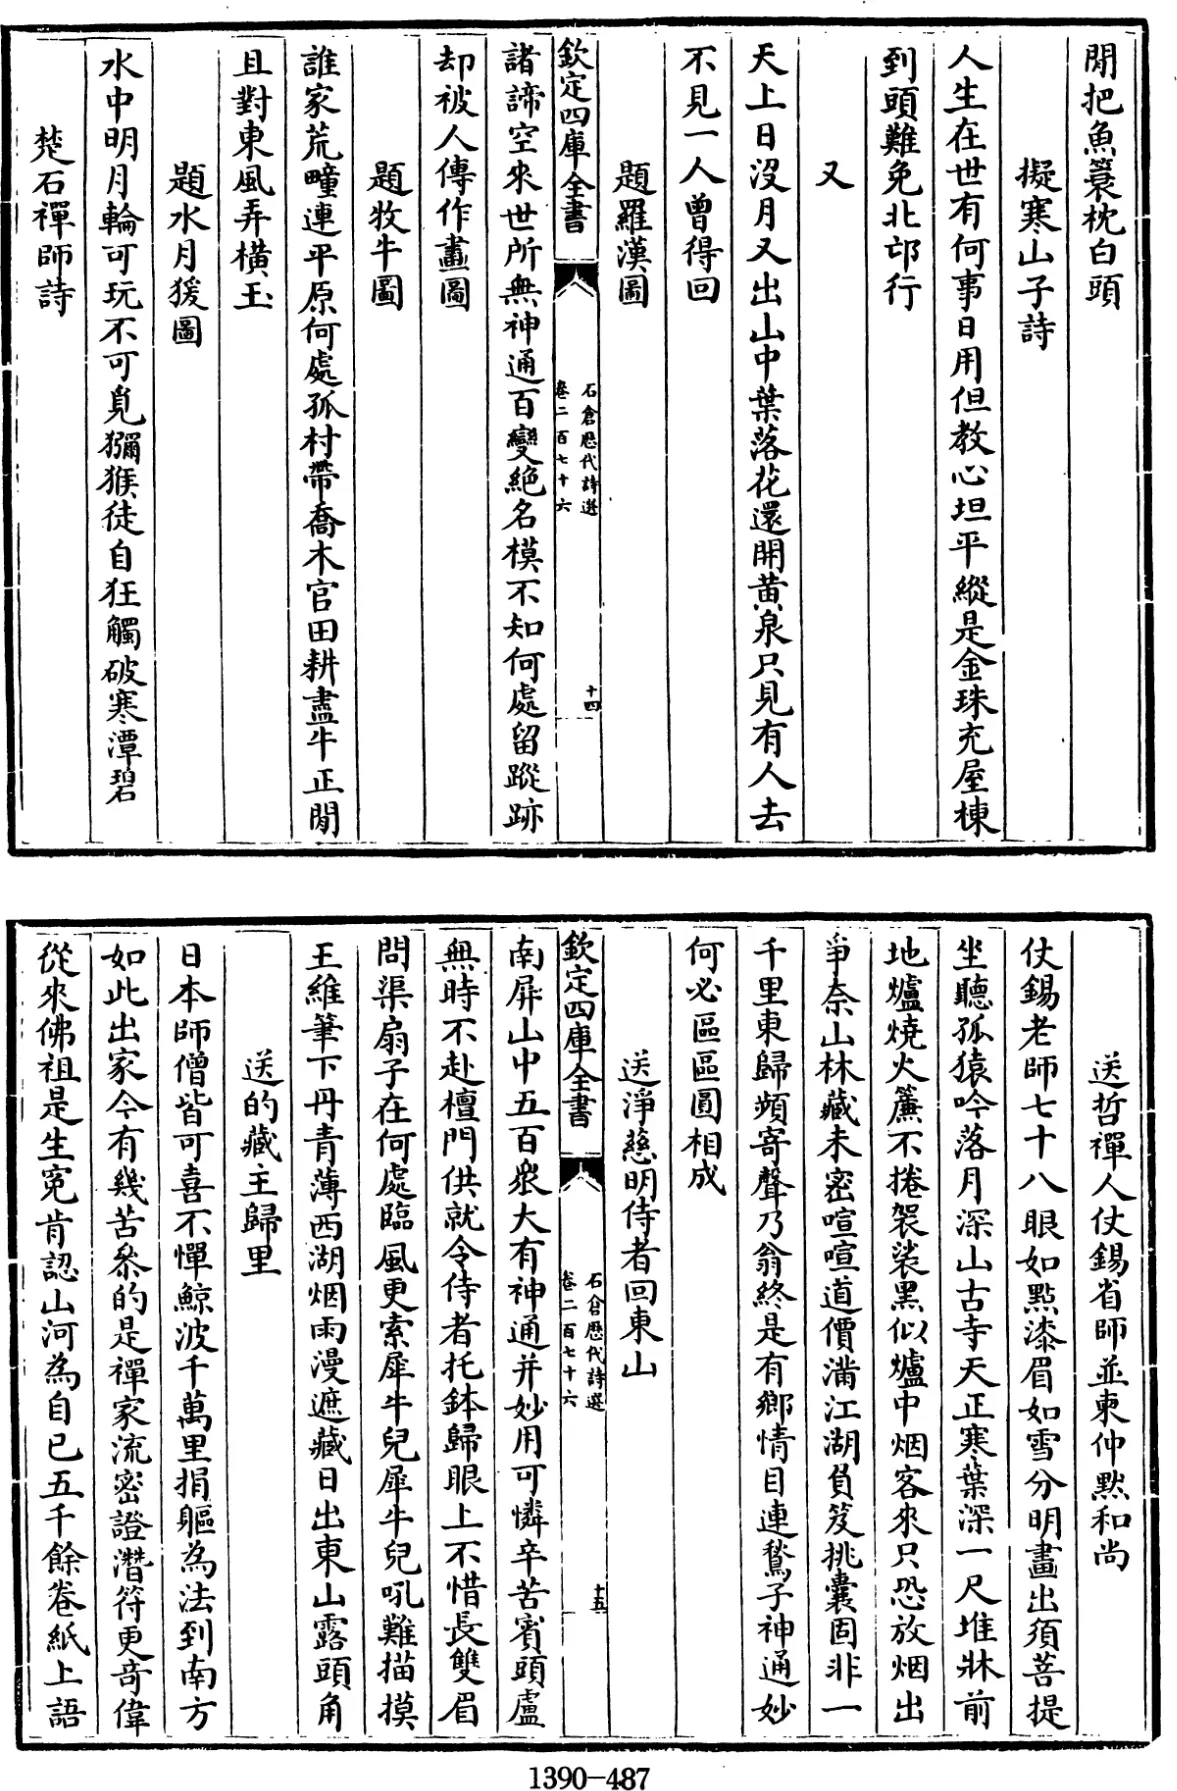 閒把魚蓑枕白頭
擬寒山子詩
人生在世有何事日用但教心坦平縱是金珠充屋棟
到頭難免北邙行
又
天上日沒月又出山中葉落花還開黄泉只見有人去
不見一人曾得回
題羅漢圖
欽定四庫全書
石倉歷代詩選
卷二百七十六
十四
諸諦空來世所無神通百變絶名模不知何處留蹤跡
却被人傳作畫圖
題牧牛圖
誰家荒疃連平原何處孤村帶喬木官田耕盡牛正閒
且對東風弄橫玉
題水月猨圖
水中明月輪可玩不可覓獼猴徒自狂觸破寒潭碧
楚石禪師詩
送哲禪人仗錫省師並柬仲黙和尚
仗錫老師七十八眼如㸃漆眉如雪分明畫出須菩提
坐聽孤猿吟落月深山古寺天正寒葉深一尺堆牀前
地爐燒火簾不捲袈裟黑似爐中烟客來只恐放烟出
爭奈山林藏未密喧喧道價滿江湖負笈挑囊固非一
千里東歸頻寄聲乃翁終是有鄉情目連鶖子神通妙
何必區區圓相成
送淨慈明侍者回東山
欽定四庫全書
石倉歷代詩選
卷二百七十六
十五
南屏山中五百衆大有神通并妙用可憐辛苦賓頭盧
無時不赴檀門供就令侍者托鉢歸眼上不惜長雙眉
問渠扇子在何處臨風更索犀牛兒犀牛兒吼難描摸
王維筆下丹青薄西湖烟雨漫遮藏日出東山露頭角
送的藏主歸里
日本師僧皆可喜不憚鯨波千萬里捐軀為法到南方
如此出家今有幾苦叅的是禪家流密證潛符更竒偉
從來佛祖是生寃肯認山河為自已五千餘卷紙上語
1390-487